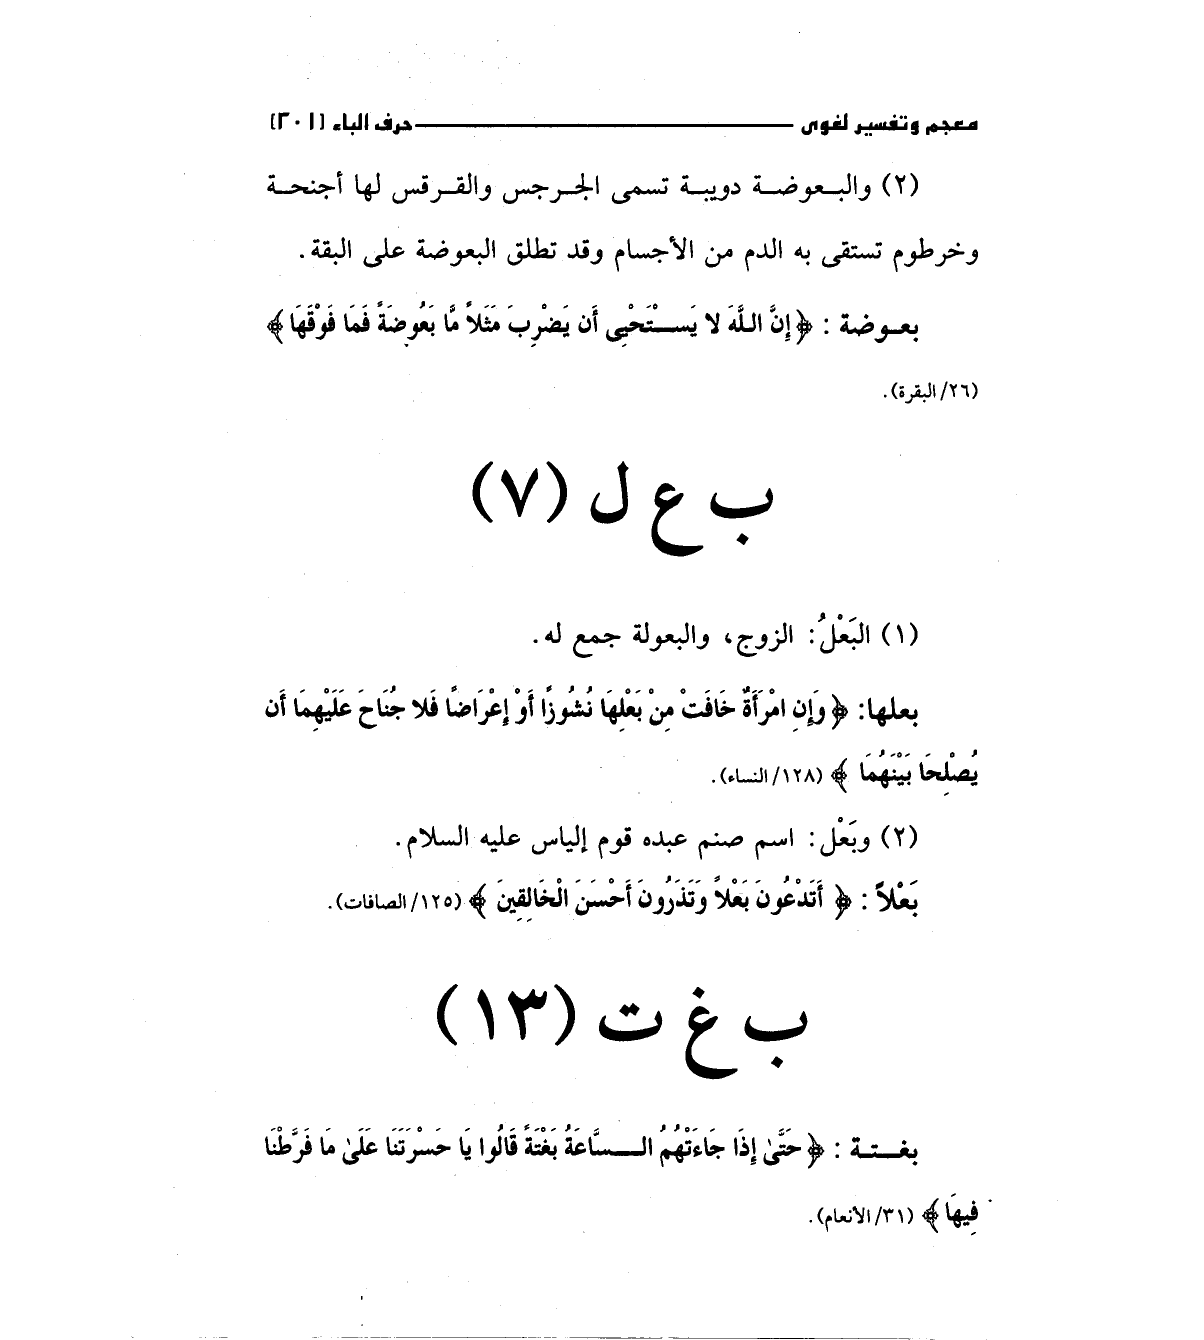 معجم وتفسير لغوى حرف الباء [٢٠١]
(٢) والبعوضة دويبة تسمى الجرجس والقرقس لها أجنحة
وخرطوم تستقى به الدم من الأجسام وقد تطلق البعوضة على البقة.
بعوضة : ﴿إِنَّ اللَّهَ لا يَسْتَحْيِى أَن يَضْرِبَ مَثَلاً مَّا بَعُوضَةً فَمَا فَوْقَهَا﴾
(٢٦/ البقرة).
ب ع ل (٧)
(١) البَعْلُ: الزوج، والبعولة جمع له.
بعلها: ﴿وَإِنِ امْرَأَةٌ خَافَتْ مِنْ بَعْلِهَا نُشُوزًا أَوْ إِعْرَاضًا فَلا جُنَاحَ عَلَيْهِمَا أَن
يُصْلِحَا بَيْنَهُمَا ﴾ (١٢٨/ النساء).
(٢) وبَعْل: اسم صنم عبده قوم إلياس عليه السلام.
بَعْلاً : ﴿ أَتَدْعُونَ بَعْلاً وَتَذَرُونَ أَحْسَنَ الْخَالِقِينَ ﴾ (١٢٥/ الصافات).
ب غ ت (١٣)
بغتة : ﴿حَتَّىٰ إِذَا جَاءَتْهُمُ السَّاعَةُ بَغْتَةً قَالُوا يَا حَسْرَتَنَا عَلَىٰ مَا فَرَّطْنَا
فِيهَا﴾ (٣١/ الأنعام).